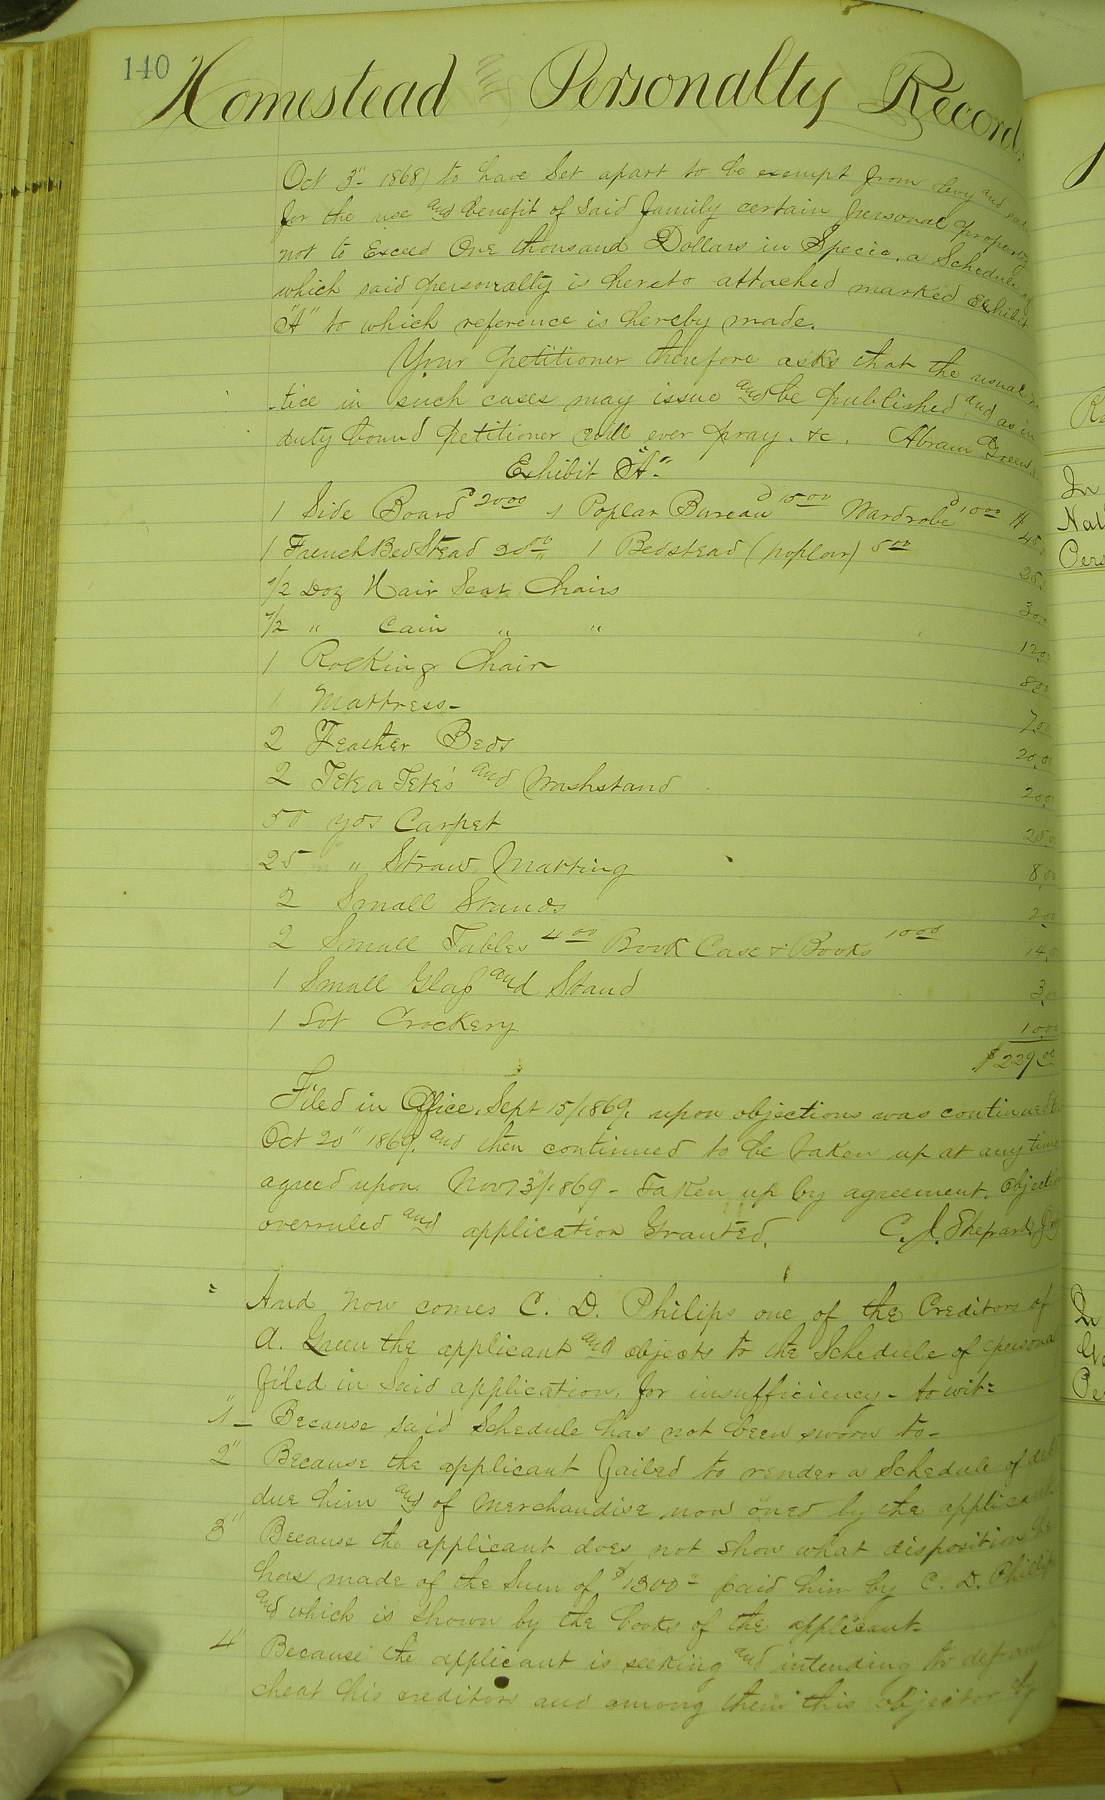 140
Homestead Personalty Record.
Oct 3" 1868) to have Set apart to be exempt from levy and sale
for the use and benefit of said family certain personal property
not to Exceed One thousand Dollars in Specie, a Schedule of
which said personalty is hereto attached marked Exhibit
"A" to which reference is hereby made.
Your petitioner therefore asks that the usual
tice in such cases may issue and be published and as in
duty bound petitioner will ever pray. &c. Abram Green
Exhibit "A"
1 Side Board $20.00 1 Poplar Bureau $15.00 Wardrobe $10.00 $ 45.0
1 French BedStead 20.00 1 Bedstead (poplar) 5.00 25.0
1/2 Doz Hair Seat Chairs 30.0
1/2 " Cain " " 12.0
1 Rocking Chair 8.00
1 Mattress- 7.00
2 Feather Beds 20.00
2 Tete a Tete's and Washstand 20.0
50 yds Carpet 25.0
25 " Straw Matting 8.00
2 Small Stands 2.00
2 Small Tables 4.00 Book Case & Books 10.00 14.0
1 Small Glass and Stand 3.00
1 Lot Crockery 10.00
$229.00
Filed in Office, Sept 15/1869. upon objections was continued to
Oct 20" 1869. and then continued to be taken up at any time
agreed upon. Nov 23/1869- Taken up by agreement. Objection
overruled and application Granted. C. J. Shepard
And now comes C. D. Philips one of the Creditors of
A. Green the applicant and objects to the Schedule of persona
filed in said application, for insufficiency- to wit:
1" Because said Schedule has not been sworn to-
2" Because the applicant failed to render a Schedule of debts
due him and of Merchandise now oned by the applicant
3" Because the applicant does not show what disposition he
has made of the Sum of $1300= paid him by C. D. Philips
and which is shown by the books of the applicant-
4" Because the applicant is seeking and intending to defraud
cheat his creditors and among them this objector by